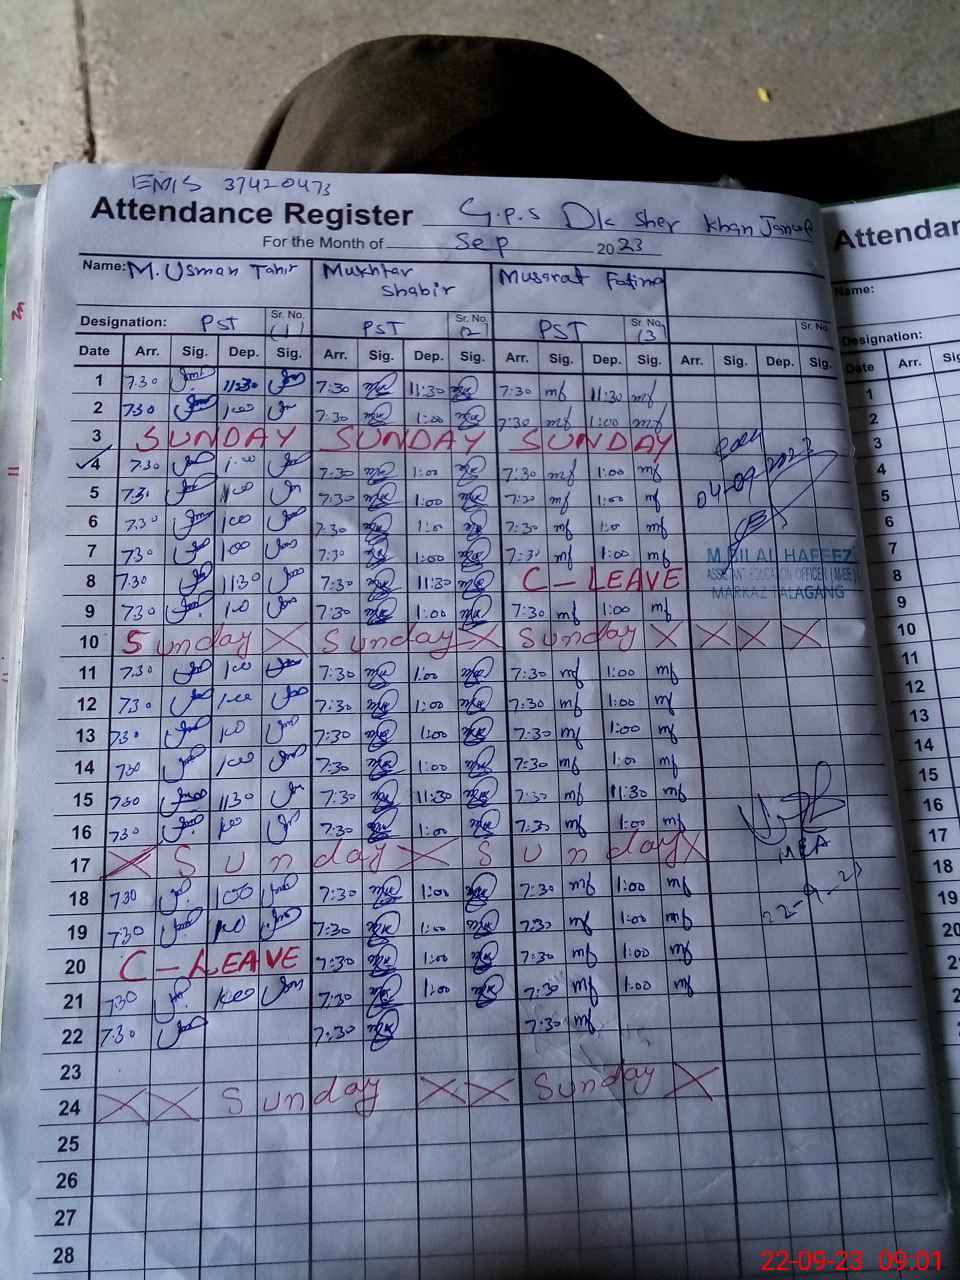 EMIS 37420473
Attendance Register G.P.S Dk Sher Khan
For the Month of Sep 2023
Name: M. Usman Tahir Mukhtar Shabir Musarat Fatima
Designation: PST Sr. No. 1 PST Sr. No. 2 PST Sr. No. 3 Sr. No.
Date Arr. Sig. Dep. Sig. Arr. Sig. Dep. Sig. Arr. Sig. Dep. Sig. Arr. Sig. Dep. Sig.
1 7:30 11:30 7:30 11:30 7:30 mf 11:30 mf
2 7:30 1:00 7:30 1:00 7:30 mf 1:00 mf
3 SUNDAY SUNDAY SUNDAY
4 7:30 1:00 7:30 1:00 7:30 mf 1:00 mf
5 7:30 1:00 7:30 1:00 7:30 mf 1:00 mf
04-09-2023
6 7:30 1:00 7:30 1:00 7:30 mf 1:00 mf
7 7:30 1:00 7:30 1:00 7:30 mf 1:00 mf
M. BILAL HAFEEZ
8 7:30 11:30 7:30 11:30 C-LEAVE
ASSISTANT EDUCATION OFFICER
MARKAZ TALAGANG
9 7:30 1:00 7:30 1:00 7:30 mf 1:00 mf
10 Sunday X Sunday X Sunday X X X X
11 7:30 1:00 7:30 1:00 7:30 mf 1:00 mf
12 7:30 1:00 7:30 1:00 7:30 mf 1:00 mf
13 7:30 1:00 7:30 1:00 7:30 mf 1:00 mf
14 7:30 1:00 7:30 1:00 7:30 mf 1:00 mf
15 7:30 11:30 7:30 11:30 7:30 mf 11:30 mf
16 7:30 1:00 7:30 1:00 7:30 mf 1:00 mf
MEA
17 X Sunday X Sunday X
18 7:30 1:00 7:30 1:00 7:30 mf 1:00 mf
22-9-23
19 7:30 1:00 7:30 1:00 7:30 mf 1:00 mf
20 C-LEAVE 7:30 1:00 7:30 mf 1:00 mf
21 7:30 1:00 7:30 1:00 7:30 mf 1:00 mf
22 7:30 7:30 7:30 mf
23
24 X X Sunday X X Sunday X
25
26
27
28
Name:
Designation:
Date Arr.
1
2
3
4
5
6
7
8
9
10
11
12
13
14
15
16
17
18
19
20
22-09-23 09:01